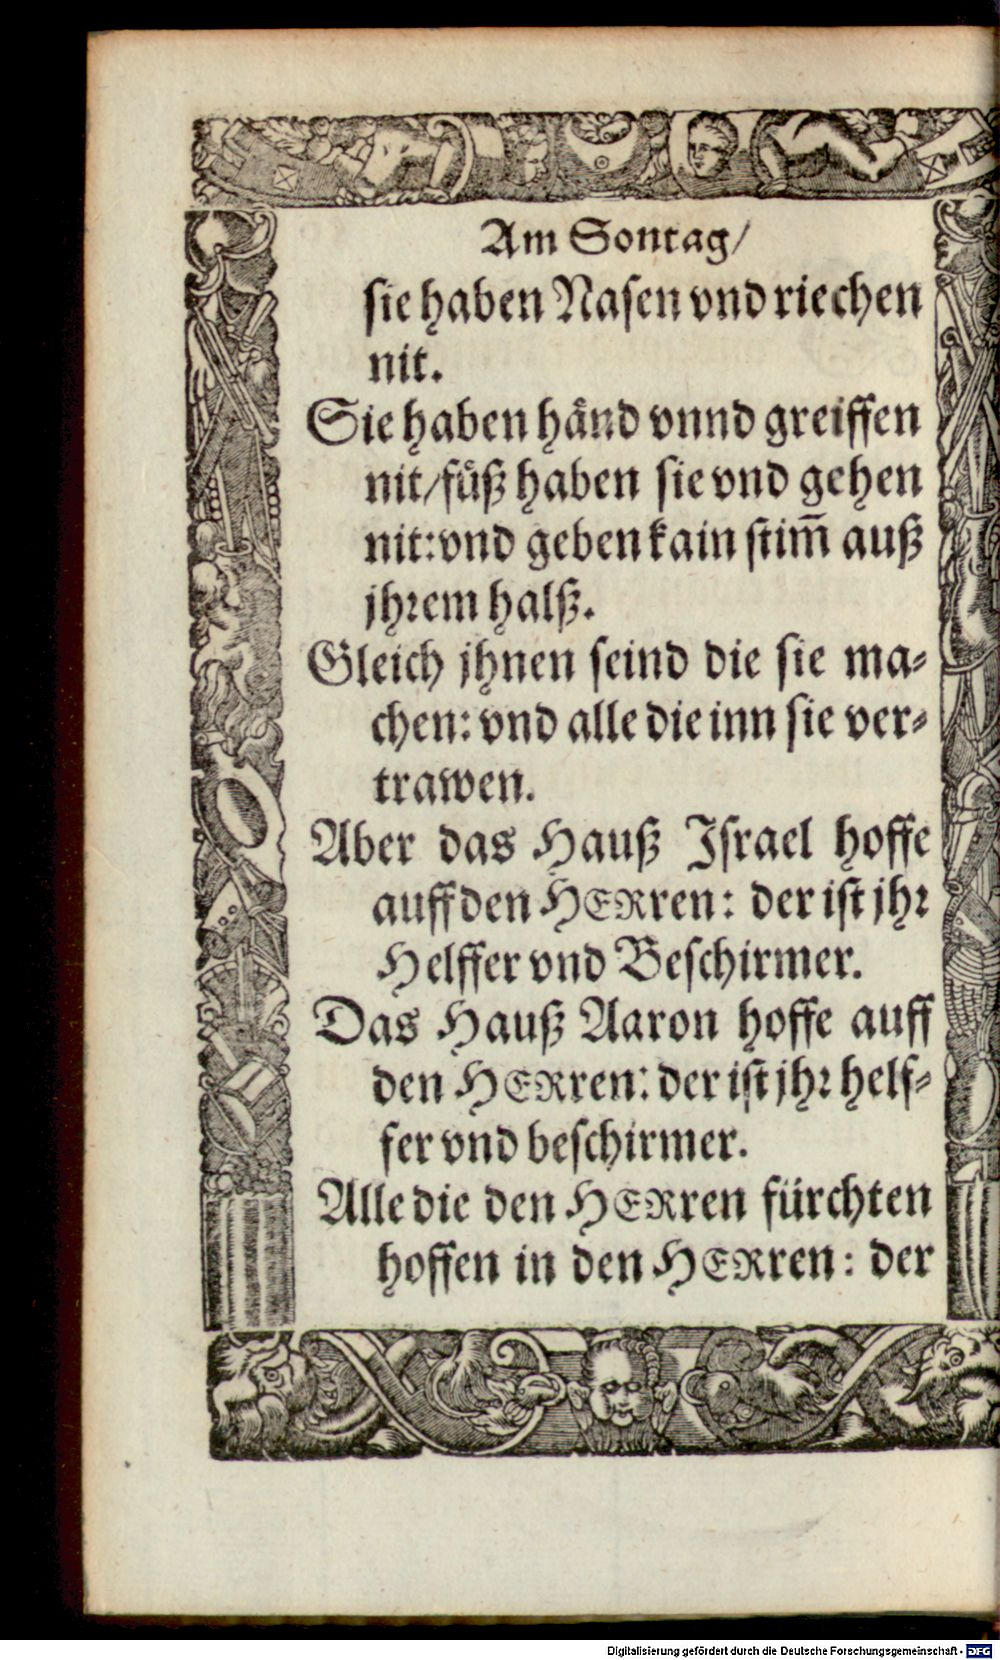 Am Sontag/
sie haben Nasen vnd riechen
nit.
Sie haben hånd vnnd greiffen
nit/füß haben sie vnd gehen
nit: vnd geben kain stim̃ auß
jhrem halß.
Gleich jhnen seind die sie ma-
chen: vnd alle die inn sie ver-
trawen.
Aber das Hauß Israel hoffe
auff den HERren: der ist jhr
Helffer vnd Beschirmer.
Das Hauß Aaron hoffe auff
den HERren: der ist jhr helf-
fer vnd beschirmer.
Alle die den HERren fürchten
hoffen in den HERren: der
Digitalisierung gefördert durch die Deutsche Forschungsgemeinschaft - DFG